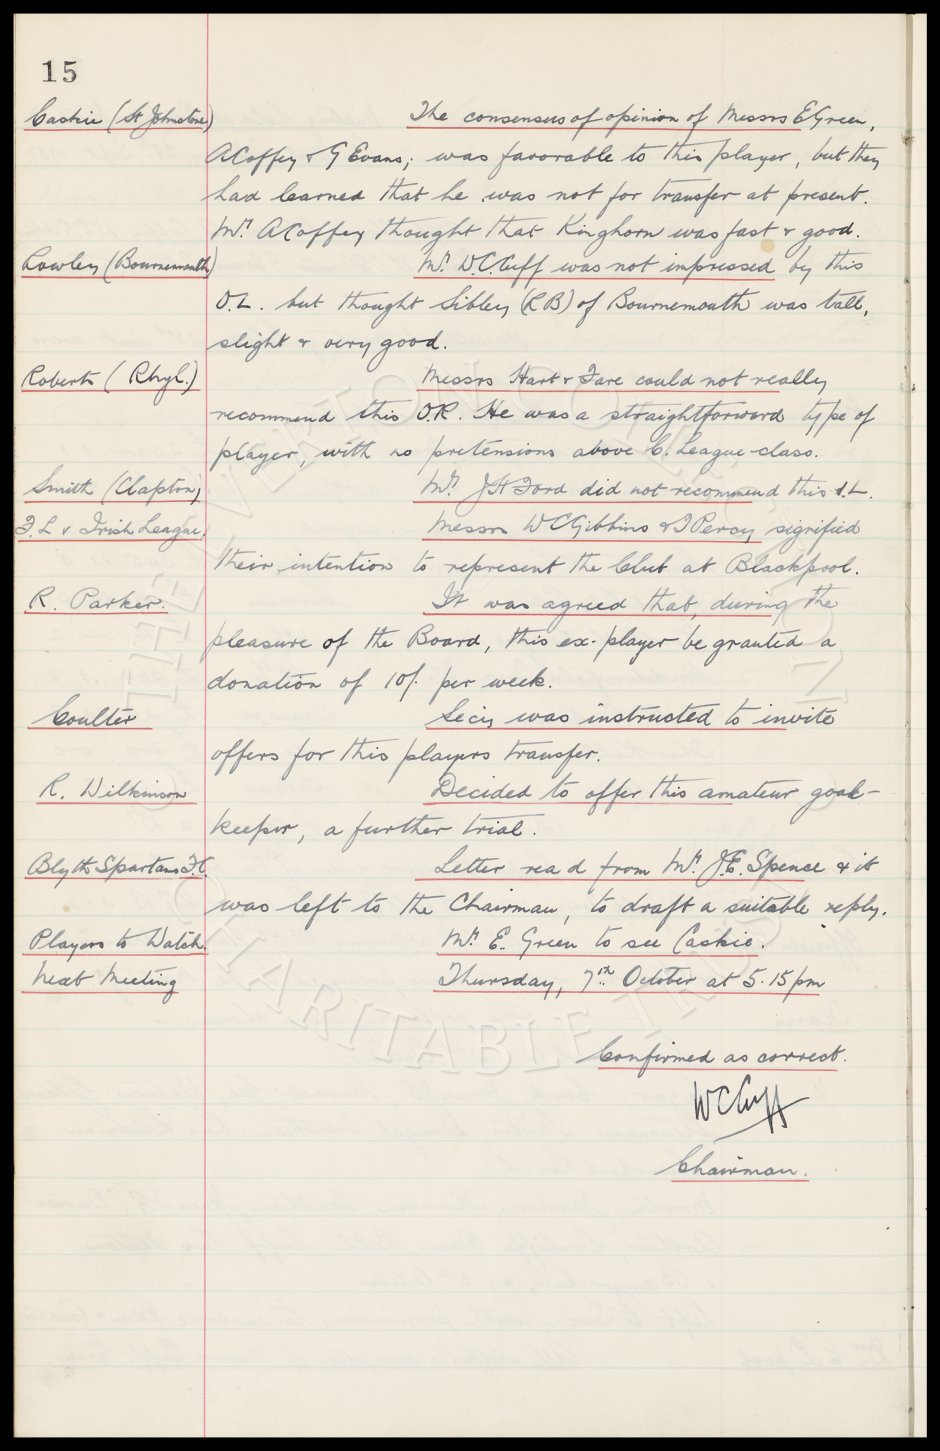 15
Caskie (St Johnstone) The consensus of opinion of Messrs E Green,
A Coffey & G Evans; was favorable to this player, but they
had learned that he was not for transfer at present.
Mr. A Coffey thought that Kinghorn was fast & good.
Rowley (Bournemouth) Mr. W.C. Cuff was not impressed by this
O.L. but thought Sibley (R B) of Bournemouth was tall,
slight & very good.
Roberts (Rhyl.) Messrs Hart & Fare could not really
recommend this O.R. He was a straightforward type of
player, with no pretensions above C. League class.
Smith (Clapton) Mr. J H Ford did not recommend this I.L.
F.L v Irish League. Messrs W C Gibbins & T Percy signified
their intention to represent the Club at Blackpool.
R. Parker. It was agreed that, during the
pleasure of the Board, this ex-player be granted a
donation of 10/. per week.
Coulter Secy was instructed to invite
offers for this players transfer.
R. Wilkinson Decided to offer this amateur goal-
keeper, a further trial.
Blyth Spartans F.C. Letter read from Mr. J.E. Spence & it
was left to the Chairman, to draft a suitable reply.
Players to Watch. Mr. E. Green to see Caskie.
Next Meeting Thursday, 7th October at 5.15 pm
Confirmed as correct.
W C Cuff
Chairman.
THE EVERTON COLLECTION CHARITABLE TRUST